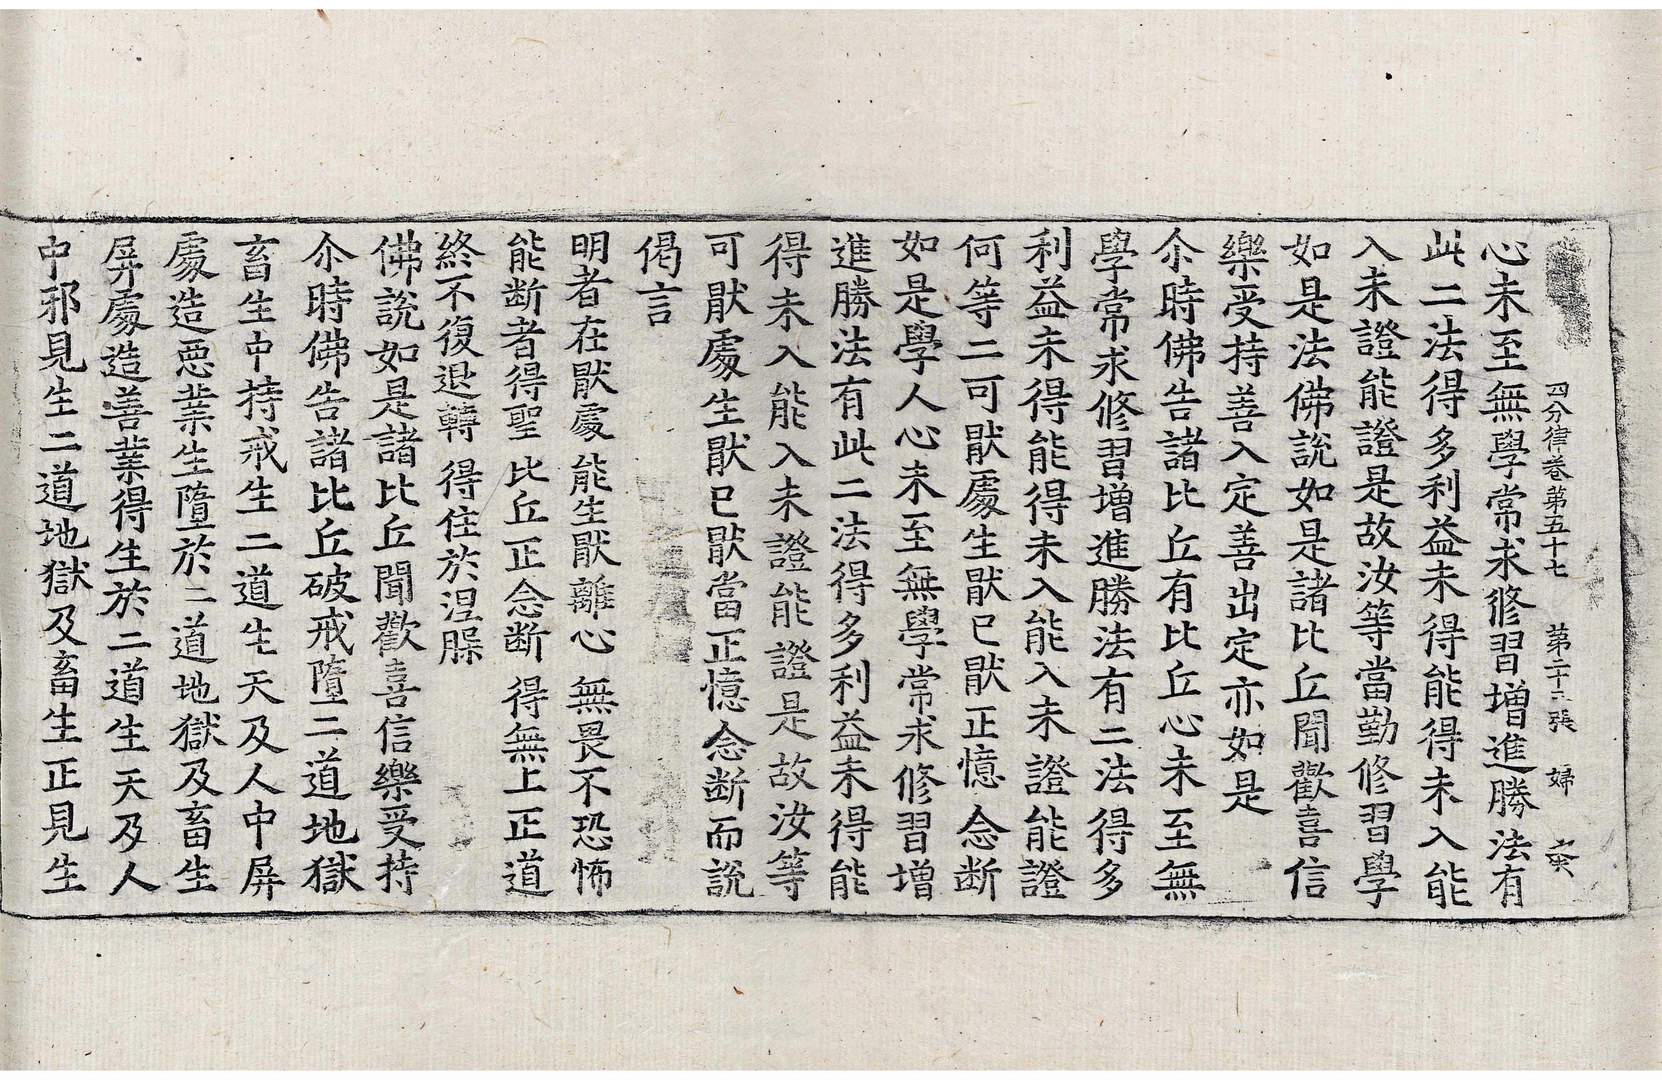 四分律卷第五十七 第二十三張 婦
心未至無學常求修習增進勝法有
此二法得多利益未得能得未入能
入未證能證是故汝等當勤修習學
如是法佛說如是諸比丘聞歡喜信
樂受持善入定善出定亦如是
尒時佛告諸比丘有比丘心未至無
學常求修習增進勝法有二法得多
利益未得能得未入能入未證能證
何等二可猒處生猒已猒正憶念斷
如是學人心未至無學常求修習增
進勝法有此二法得多利益未得能
得未入能入未證能證是故汝等
可猒處生猒已猒當正憶念斷而說
偈言
明者在猒處 能生猒離心 無畏不恐怖
能断者得聖 比丘正念断 得無上正道
終不復退轉 得住於涅槃
佛說如是諸比丘聞歡喜信樂受持
尒時佛告諸比丘破戒墮二道地獄
畜生中持戒生二道生天及人中屏
處造惡業生墮於二道地獄及畜生
屏處造善業得生於二道生天及人
中邪見生二道地獄及畜生正見生